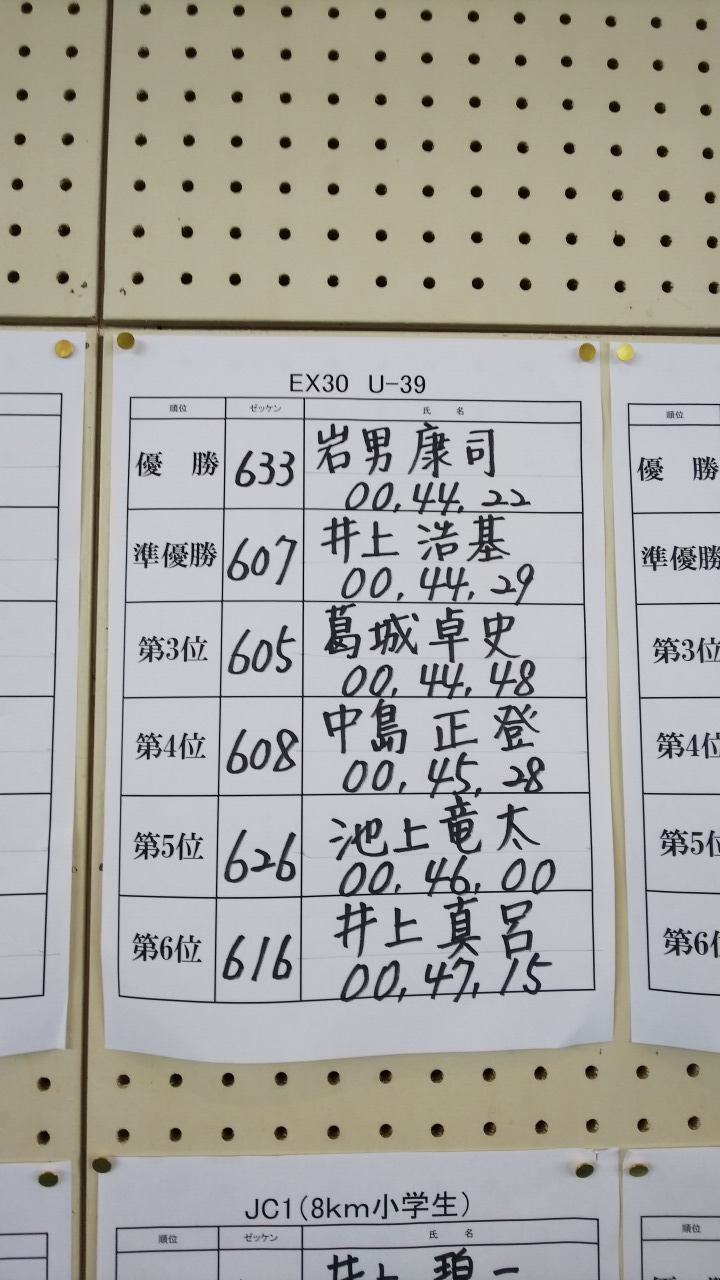 EX30 U-39
順位 ゼッケン 氏 名
優 勝 633 岩男 康司
00,44,22
準優勝 607 井上 浩基
00,44,29
第3位 605 葛城 卓史
00,44,48
第4位 608 中島 正登
00,45,28
第5位 626 池上 竜太
00,46,00
第6位 616 井上 真呂
00,47,15
順位
優 勝
準優勝
第3位
第4位
第5位
第6位
JC1(8km小学生)
順位 ゼッケン 氏 名
井上 碧一
順位